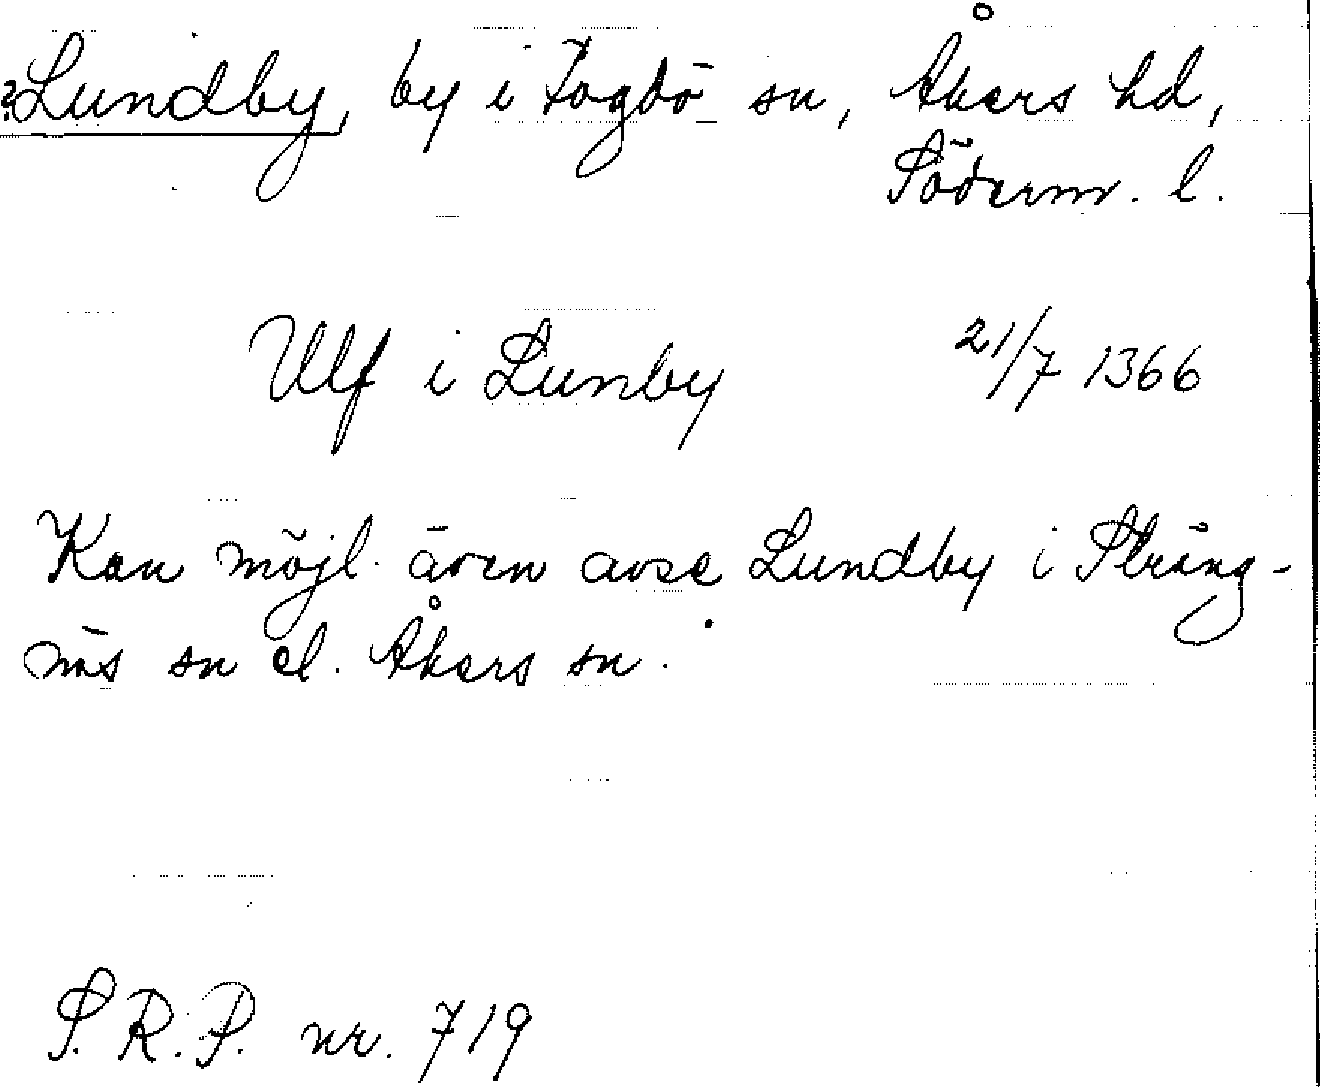 ?Lundby, by i Fogdö sn, Åkers hd,
Söderm. l.
Ulf i Lunby 21/7 1366
Kan möjl. även avse Lundby i Sträng-
näs sn el. Åkers sn.
S.R.P. nr. 719